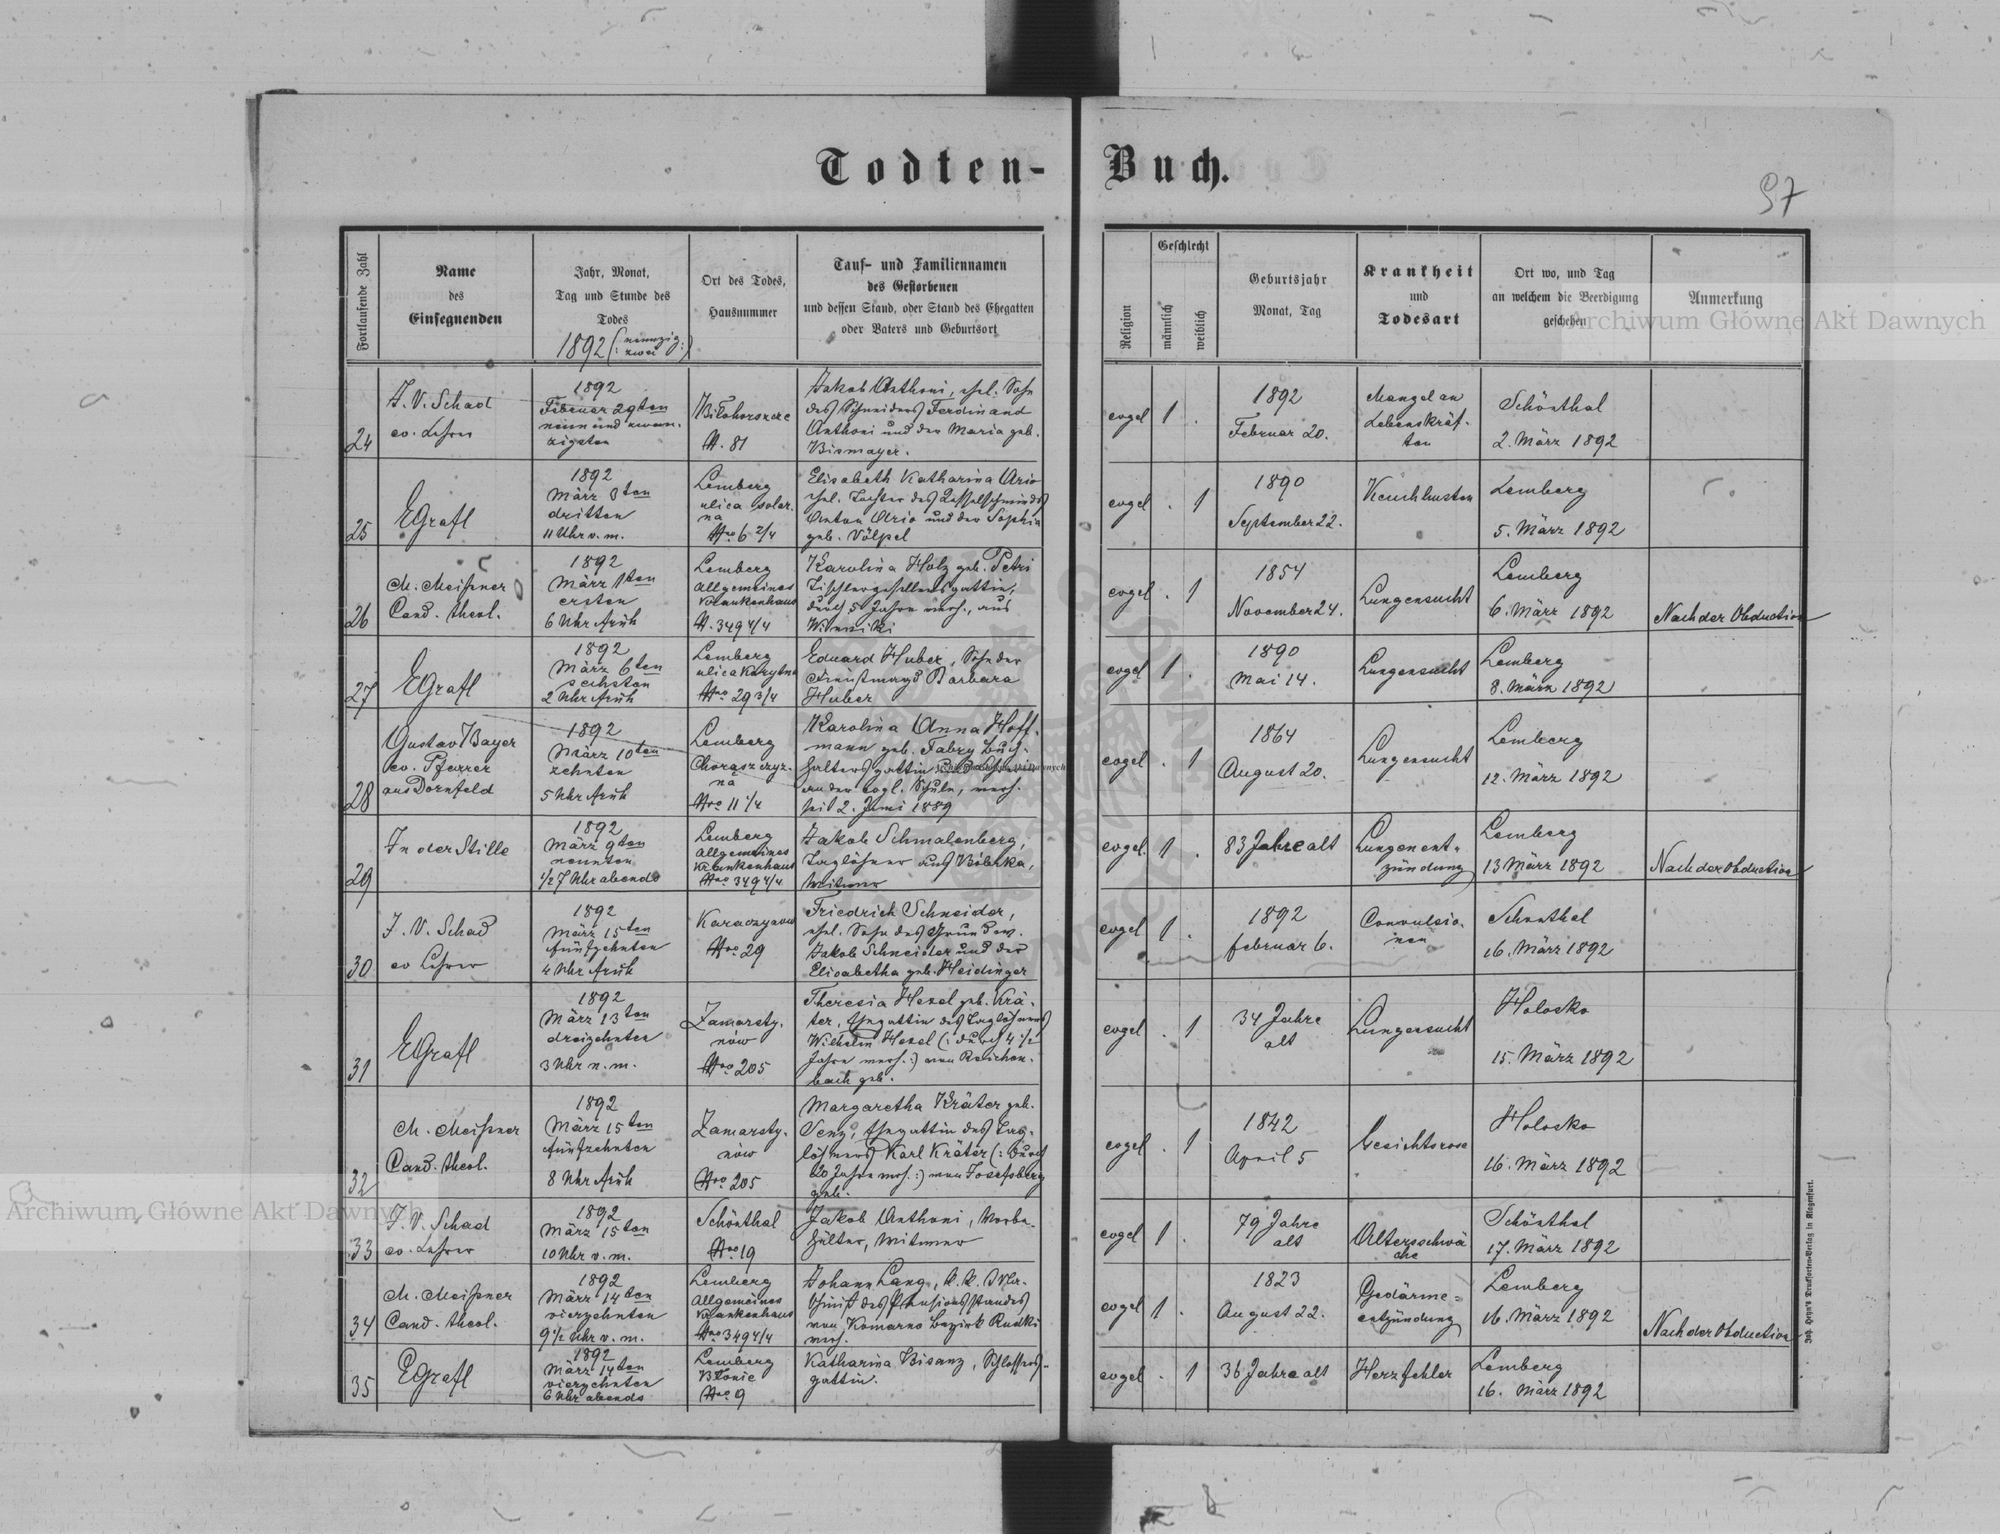 Todten-
Buch.
97
Fortlaufende Zahl
Name
des
Einsegnenden
Jahr, Monat,
Tag und Stunde des
Todes
1892 (: neunzig: zwei :)
Ort des Todes,
Hausnummer
Tauf- und Familiennamen
des Gestorbenen
und dessen Stand, oder Stand des Ehegatten
oder Vaters und Geburtsort
Religion
Geschlecht
männlich
weiblich
Geburtsjahr
Monat, Tag
Krankheit
und
Todesart
Ort wo, und Tag
an welchem die Beerdigung
geschehen
Anmerkung
Archiwum Główne Akt Dawnych
24
J. V. Schad
ev. Lehrer
1892
Februar 29ten
neun und zwan-
zigsten
Bilohorszcze
N. 81
Jakob Anthoni, ehel. Sohn
des Schneiders Ferdinand
Anthoni und der Maria geb.
Bismayer.
evgel
1 .
1892
Februar 20.
Mangel an
Lebenskräf-
ten
Schönthal
2. März 1892
25
EGrafl
1892
März 3ten
dritten
11 Uhr v. m.
Lemberg
ulica solar-
na
Nro 6 2/4
Elisabeth Katharina Ario
ehel. Tochter des Kesselschmieds
Anton Ario und der Sophia
geb. Völpel
evgel
. 1
1890
September 22.
Keuchhusten
Lemberg
5. März 1892
26
M. Meißner
Cand. theol.
1892
März 1ten
ersten
6 Uhr früh
Lemberg
Allgemeines
Krankenhaus
N. 349 4/4
Karolina Holz geb. Petri
Tischlergesellensgattin,
durch 5 Jahre verh., aus
Winniki
evgel
. 1
1854
November 24.
Lungensucht
Lemberg
6. März 1892
Nach der Obduction
27
EGrafl
1892
März 6ten
sechsten
2 Uhr früh
Lemberg
ulica Korytna
Nro 29 3/4
Eduard Huber, Sohn der
Dienstmagd Barbara
Huber
evgel
1 .
1890
Mai 14.
Lungensucht
Lemberg
8. März 1892
28
Gustav Bayer
ev. Pfarrer
aus Dornfeld
1892
März 10ten
zehnten
5 Uhr früh
Lemberg
Chorąszczyz-
na
Nro 11 1/4
Karolina Anna Hoff-
mann geb. Fabry Buch-
halters gattin
an der evgl. Schule, verh.
seit 2. Juni 1889
evgel
. 1
1864
August 20.
Lungensucht
Lemberg
12. März 1892
29
In der Stille
1892
März 9ten
neunten
1/2 7 Uhr abends
Lemberg
Allgemeines
Krankenhaus
Nro 349 4/4
Jakob Schmalenberg,
Taglöhner aus Bóbrka,
Witwer
evgel.
1 .
83 Jahre alt
Lungenent-
zündung
Lemberg
13 März 1892
Nach der Obduction
30
J. V. Schad
ev Lehrer
1892
März 15ten
fünfzehnten
4 Uhr früh
Karaczynow
Nro 29
Friedrich Schneider,
ehel. Sohn des Grundw.
Jakob Schneider und der
Elisabetha geb. Heidinger
evgel
1 .
1892
februar 6.
Convulsio-
nen
Schönthal
16. März 1892
31
EGrafl
1892
März 13ten
dreizehnten
3 Uhr n. m.
Zamarsty-
nów
Nro 205
Theresia Hexel geb. Krä-
ter, Ehegattin des Taglöhners
Wilhelm Hexel (: durch 4 1/2
Jahre verh. :) von Reichen-
bach geb.
evgel
. 1
34 Jahre
alt
Lungensucht
Holosko
15. März 1892
32
M. Meißner
Cand. theol.
1892
März 15ten
fünfzehnten
8 Uhr früh
Zamarsty-
nów
Nro 205
Margaretha Kräter geb.
Senz, Ehegattin des Tag-
löhners Karl Kräter (: durch
20 Jahre verh. :) von Josefsberg
geb.
evgel
. 1
1842
April 5
Gesichtsrose
Holosko
16. März 1892
33
J. V. Schad
ev. Lehrer
1892
März 15ten
10 Uhr v. m.
Schönthal
Nro 19
Jakob Anthoni, Vorbe-
hälter, Witwer
evgel
1 .
79 Jahre
alt
Altersschwä
che
Schönthal
17. März 1892
34
M. Meißner
Cand. theol.
1892
März 14ten
vierzehnten
9 1/2 Uhr v. m.
Lemberg
Allgemeines
Krankenhaus
Nro 349 4/4
Johann Lang, k. k.
des Pensionsstandes
von Komarno Bezirk Rudki
verh.
evgel
1 .
1823
August 22.
Gedärme-
entzündung
Lemberg
16. März 1892
Nach der Obduction
35
EGrafl
1892
März 14ten
vierzehnten
6 Uhr abends
Lemberg
Błonie
Nro 9
Katharina Bisanz, Schlossers-
gattin.
evgel
. 1
36 Jahre alt
Herzfehler
Lemberg
16. März 1892
Archiwum Główne Akt Dawnych
Joh. Heyn's Drucksorten-Verlag in Klagenfurt.